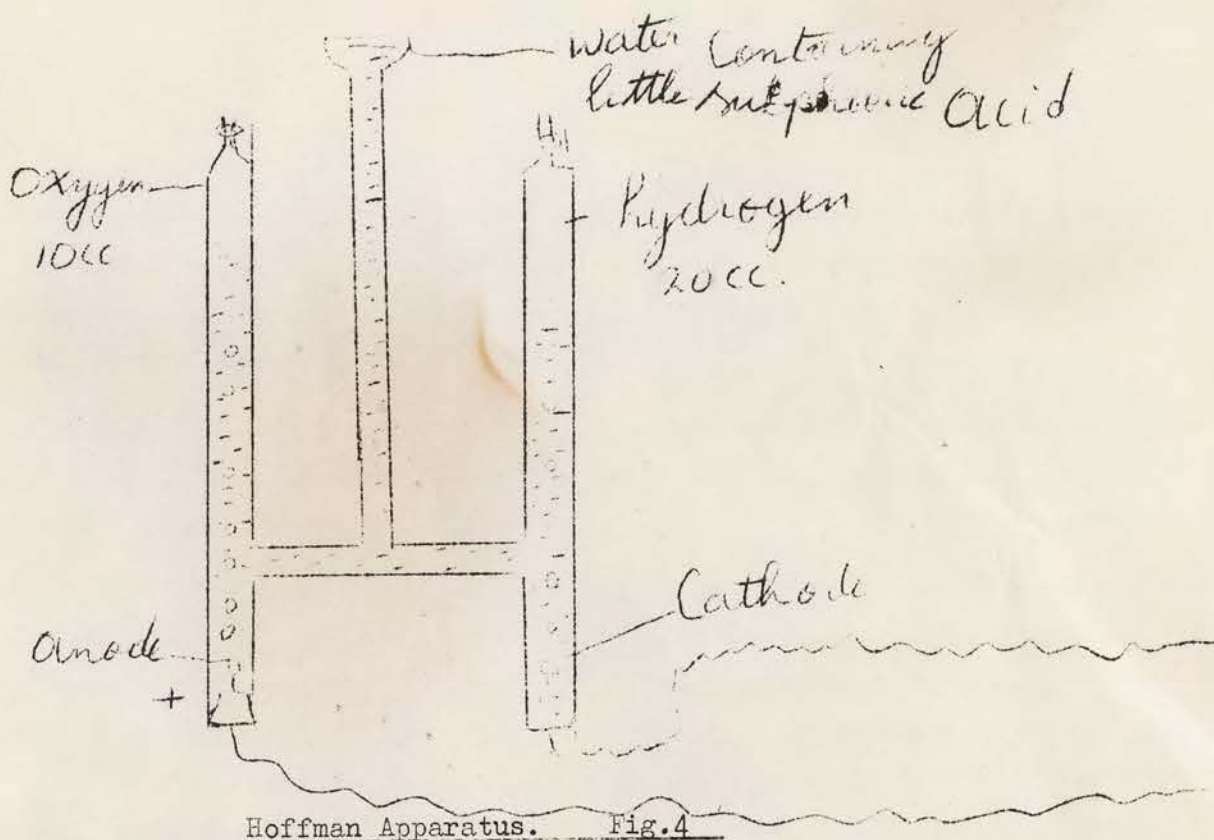 Water Containing
little sulphuric acid
Oxygen
10cc
Hydrogen
20cc.
Cathode
anode
+
Hoffman Apparatus. Fig.4